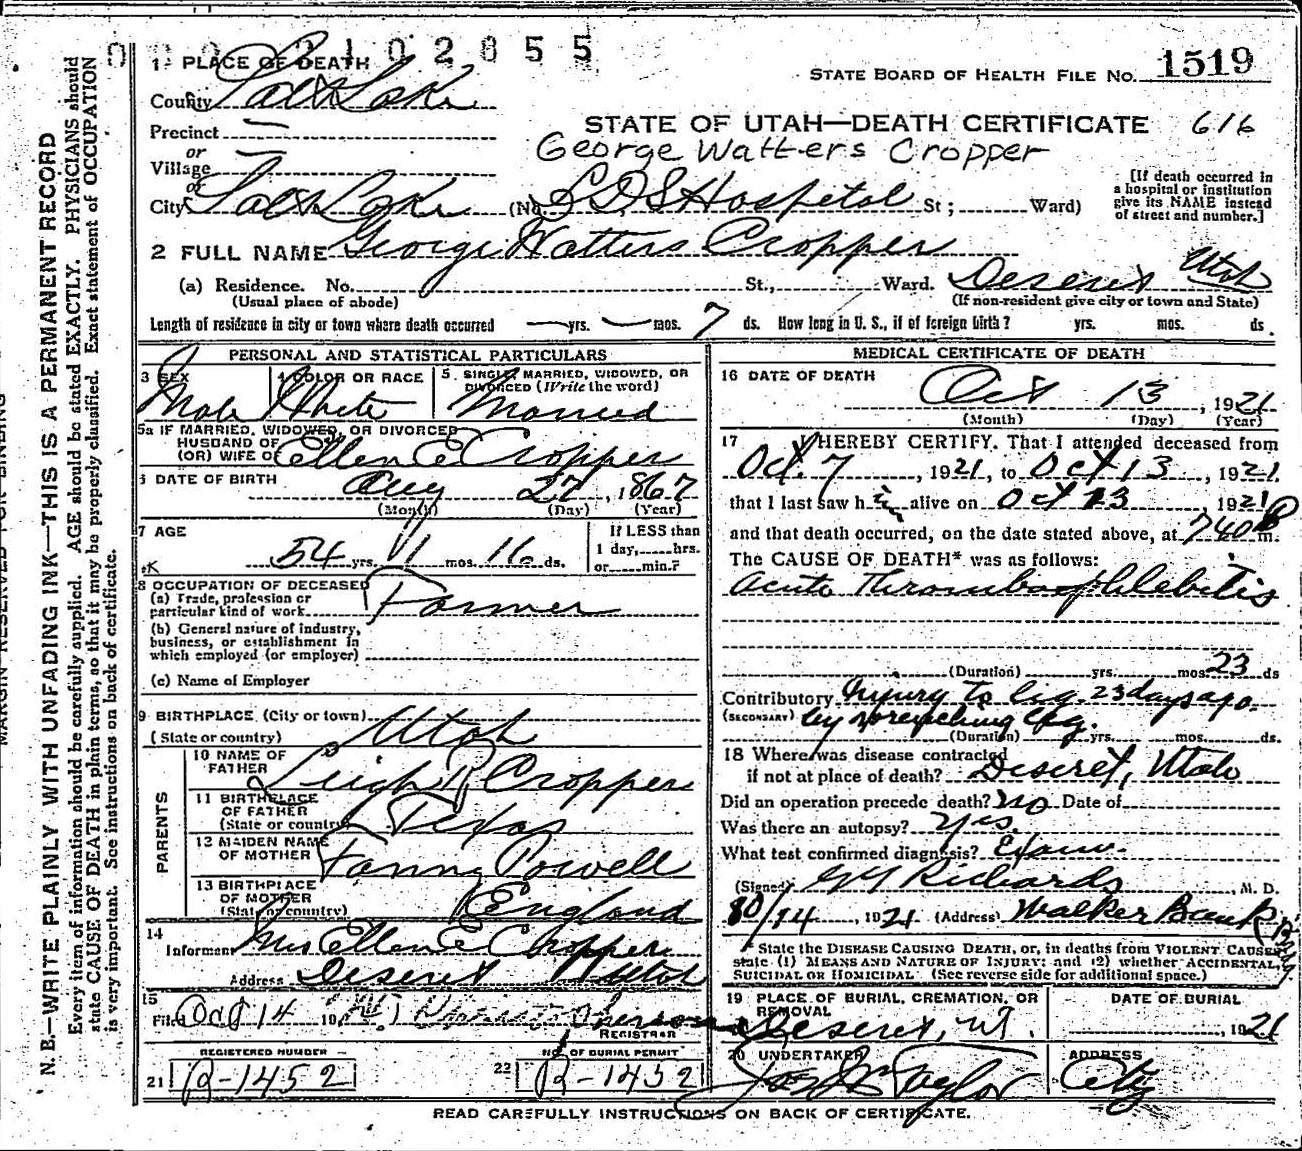 2102855
1 PLACE OF DEATH
STATE BOARD OF HEALTH FILE NO. 1519
County Salt Lake
Precinct
STATE OF UTAH—DEATH CERTIFICATE 616
or
George Watters Cropper
Village
or
[If death occurred in
a hospital or institution
give its NAME instead
of street and number.]
City Salt Lake (No. L D S Hospital St; Ward)
2 FULL NAME George Watters Cropper
(a) Residence. No. St., Ward. Deseret Utah
(Usual place of abode) (If non-resident give city or town and State)
Length of residence in city or town where death occurred — yrs. — mos. 7 ds. How long in U. S., if of foreign birth? yrs. mos. ds.
PERSONAL AND STATISTICAL PARTICULARS
3 SEX
Male
4 COLOR OR RACE
White
5. SINGLE, MARRIED, WIDOWED, OR
DIVORCED (Write the word)
Married
5a IF MARRIED, WIDOWED, OR DIVORCED
HUSBAND OF
(OR) WIFE OF Ellen E Cropper
6 DATE OF BIRTH
Aug 27, 1867
(Month) (Day) (Year)
7 AGE
54 yrs. 1 mos. 16 ds.
If LESS than
1 day, hrs.
or min.?
8 OCCUPATION OF DECEASED
(a) Trade, profession or
particular kind of work Farmer
(b) General nature of industry,
business, or establishment in
which employed (or employer)
(c) Name of Employer
9 BIRTHPLACE (City or town)
(State or country) Utah
PARENTS
10 NAME OF
FATHER Leigh R Cropper
11 BIRTHPLACE
OF FATHER
(State or country) Texas
12 MAIDEN NAME
OF MOTHER Fanny Powell
13 BIRTHPLACE
OF MOTHER
(State or country) England
14
Informant Mrs Ellen E Cropper
Address Deseret Utah
15
Filed Oct 14 19
REGISTRAR
REGISTERED NUMBER
21 R-1452
NO. OF BURIAL PERMIT
22 R-1452
MEDICAL CERTIFICATE OF DEATH
16 DATE OF DEATH
Oct 13, 1921
(Month) (Day) (Year)
17 I HEREBY CERTIFY. That I attended deceased from
Oct. 7, 1921, to Oct 13, 1921.
that I last saw him alive on Oct 13 1921
and that death occurred, on the date stated above, at 740 P m.
The CAUSE OF DEATH* was as follows:
Acute Thrombophlebitis
(Duration) yrs. mos. 23 ds
Contributory Injury to leg. 23 days ago.
(SECONDARY) by wrenching leg.
(Duration) yrs. mos. ds.
18 Where was disease contracted
if not at place of death? Deseret, Utah
Did an operation precede death? no Date of
Was there an autopsy? Yes.
What test confirmed diagnosis? Exam.
(Signed) G G Richards, M. D.
10/14, 1921 (Address) Walker Bank Bldg
* State the DISEASE CAUSING DEATH, or, in deaths from VIOLENT CAUSES,
state (1) MEANS AND NATURE OF INJURY; and (2) whether ACCIDENTAL,
SUICIDAL OR HOMICIDAL (See reverse side for additional space.)
19 PLACE OF BURIAL, CREMATION, OR
REMOVAL
Deseret, UT.
DATE OF BURIAL
, 1921
20 UNDERTAKER
Taylor
ADDRESS
City
READ CAREFULLY INSTRUCTIONS ON BACK OF CERTIFICATE.
MARGIN RESERVED FOR BINDING
N. B.—WRITE PLAINLY WITH UNFADING INK—THIS IS A PERMANENT RECORD
Every item of information should be carefully supplied. AGE should be stated EXACTLY. PHYSICIANS should
state CAUSE OF DEATH in plain terms, so that it may be properly classified. Exact statement of OCCUPATION
is very important. See instructions on back of certificate.